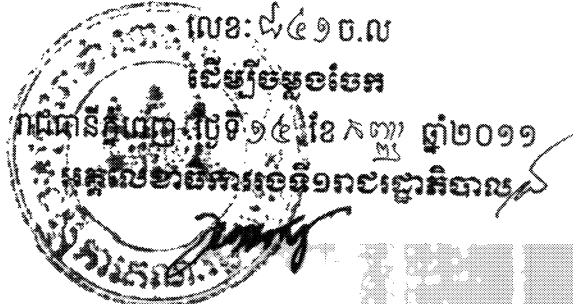 លេខ: ៨៤១ ច.ល
ដើម្បីចម្លងចែក
រាជធានីភ្នំពេញ, ថ្ងៃទី ១៤ ខែ កញ្ញា ឆ្នាំ២០១១
អគ្គលេខាធិការរងទី១រាជរដ្ឋាភិបាល